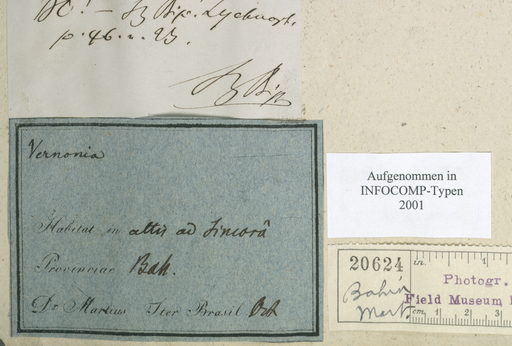 DC! — Sz Bip. Lychnoph.
p. 46. n. 23.
Sz Bip
Vernonia
Habitat in altis ad Sincorâ
Provinciae Bah.
Dr Martius Iter Brasil Oct
Aufgenommen in
INFOCOMP-Typen
2001
20624
Bahia
Mart.
in. 1
Photogr.
Field Museum
cm. 1 2 3